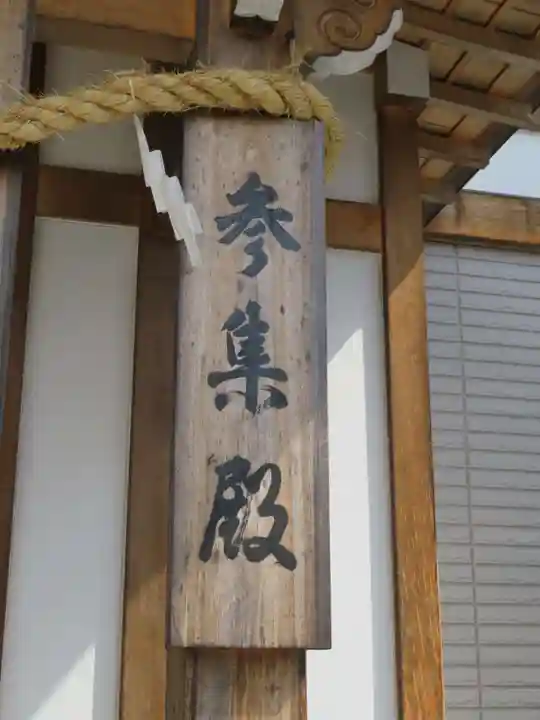 参集殿